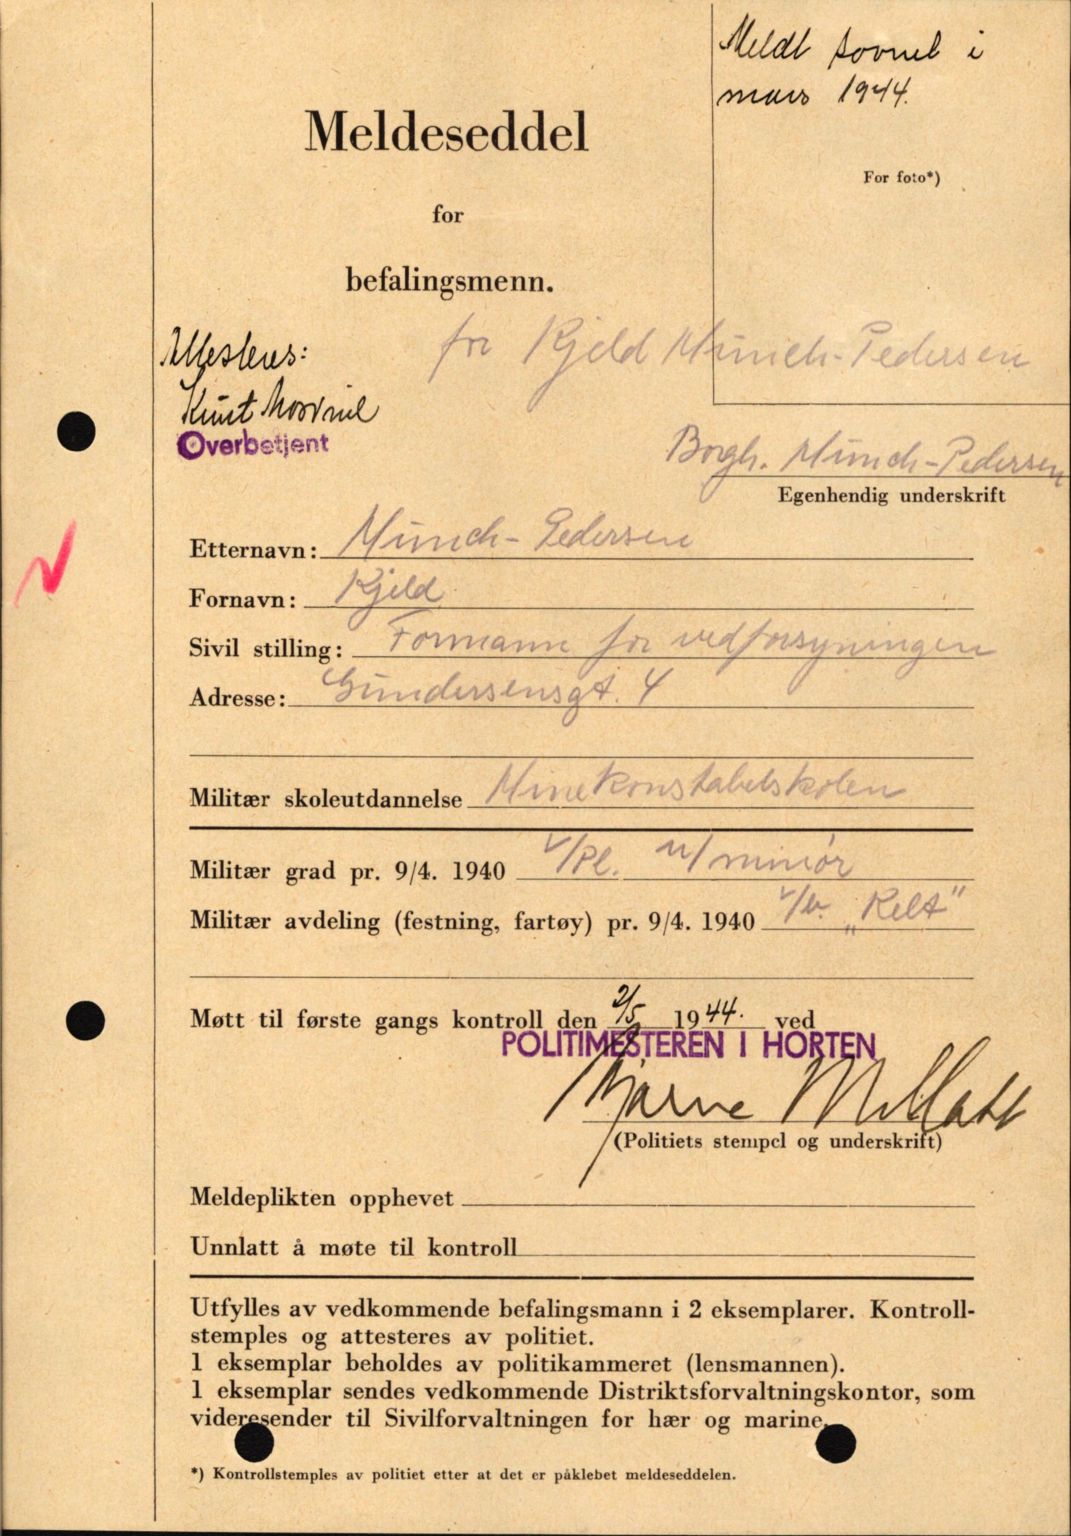 Meldt savnet i
mars 1944.
Meldeseddel
For foto*)
for
befalingsmenn.
for Kjeld Münch-Pedersen
Attesteres:
Knut
Overbetjent
Borgh. Münch-Pedersen
Egenhendig underskrift
Etternavn: Münch-Pedersen
Fornavn: Kjeld
Sivil stilling: Formann for vedforsyningen
Adresse: Gundersensgt. 4
Militær skoleutdannelse Minekonstabelskolen
Militær grad pr. 9/4. 1940 V/Pl. u/minør
Militær avdeling (festning, fartøy) pr. 9/4. 1940 v/b. „Kelt"
Møtt til første gangs kontroll den 2/5 1944. ved
POLITIMESTEREN I HORTEN
Bjarne
(Politiets stempel og underskrift)
Meldeplikten opphevet
Unnlatt å møte til kontroll
Utfylles av vedkommende befalingsmann i 2 eksemplarer. Kontroll-
stemples og attesteres av politiet.
1 eksemplar beholdes av politikammeret (lensmannen).
1 eksemplar sendes vedkommende Distriktsforvaltningskontor, som
videresender til Sivilforvaltningen for hær og marine.
*) Kontrollstemples av politiet etter at det er påklebet meldeseddelen.